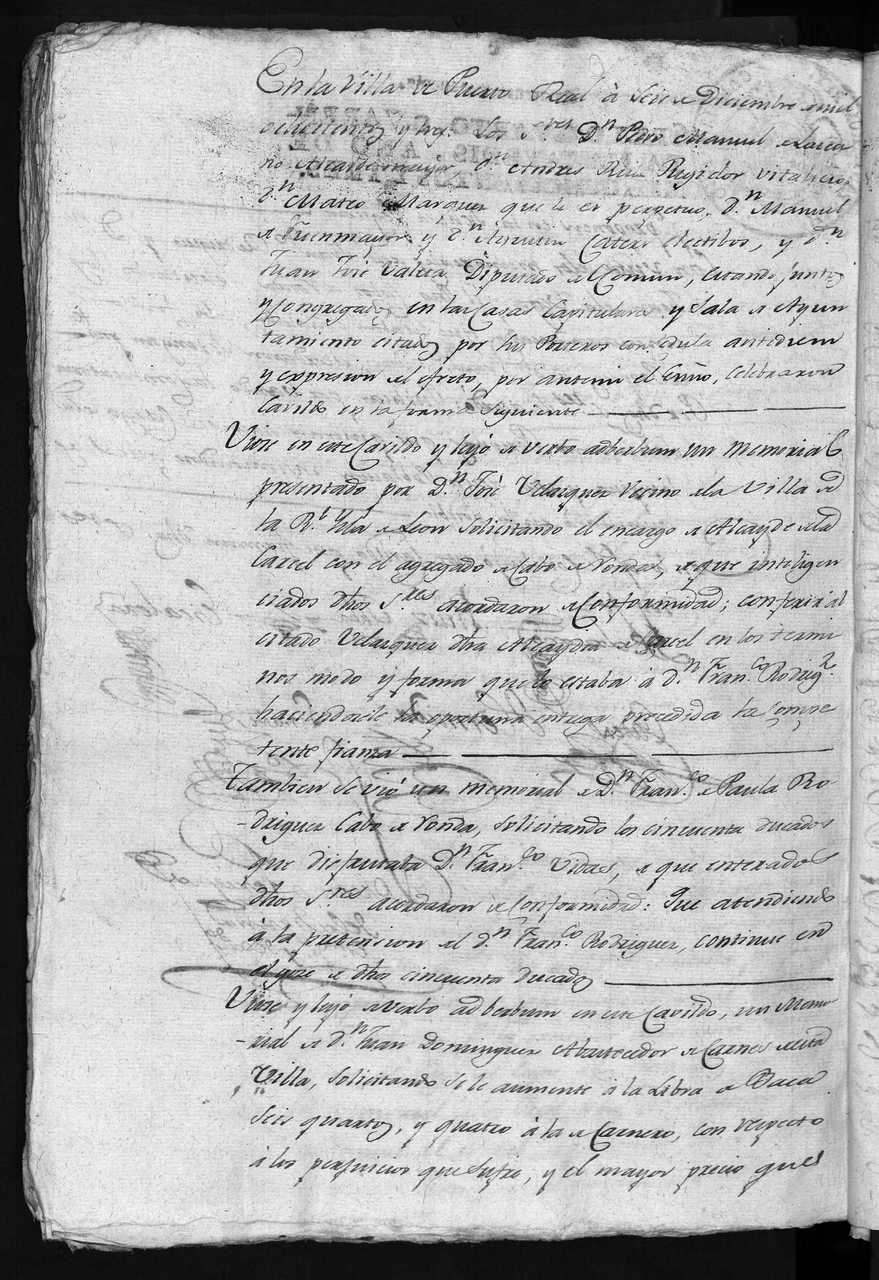 En la Villa de Puerto Real à Seis de Diciembre de mil
ochocientos y tres. Los Sres Dn. Pedro Manuel de
Alcalde mayor, Dn. Andres Ruiz Regidor vitalicio,
Dn. Mateo Marquez que lo es perpetuo, Dn. Manuel
de Fuenmayor y Dn. electibos, y Dn.
Juan José Diputado del Comun, estando juntos
y Congregados en las Casas Capitulares y Sala de Ayun
tamiento citados por sus Porteros con cedula antediem
y expresion del efecto, por antemi el Essno, celebraron
Cavildo en la forma siguiente
Viose en este Cavildo y leyó de verbo adberbum un memorial
presentado por Dn. José Velazquez Vecino de la Villa de
la Rl. Isla de Leon solicitando el encargo de Alcayde de la
Carcel con el agregado de Cabo de Ronda, de que inteligen
ciados dhos Sres acordaron de Conformidad; conferir al
citado Velazquez dha Alcaydia de Carcel en los termi
nos modo y forma que lo estaba à Dn. Franco. Rodrigz.
haciendosele la oportuna entrega precedida la Compe
tente fianza
Tambien se vió un memorial de Dn. Franco. de Paula Ro-
driguez Cabo de Ronda, solicitando los cincuenta ducados
que disfrutaba Dn. Franco. Vidal, de que enterados
dhos Sres acordaron de Conformidad: Que atendiendo
à la pretencion del Dn. Franco. Rodriguez, continue en
el goze de dhos cincuenta ducados
Viose y leyó de Verbo adberbum en este Cavildo, un Memo-
rial de Dn. Juan Dominguez Abastecedor de Carnes de esta
Villa, solicitando se le aumente à la Libra de Baca
Seis quartos, y quatro à la de Carnero, con respecto
à los perjuicios que sufre, y el mayor precio que